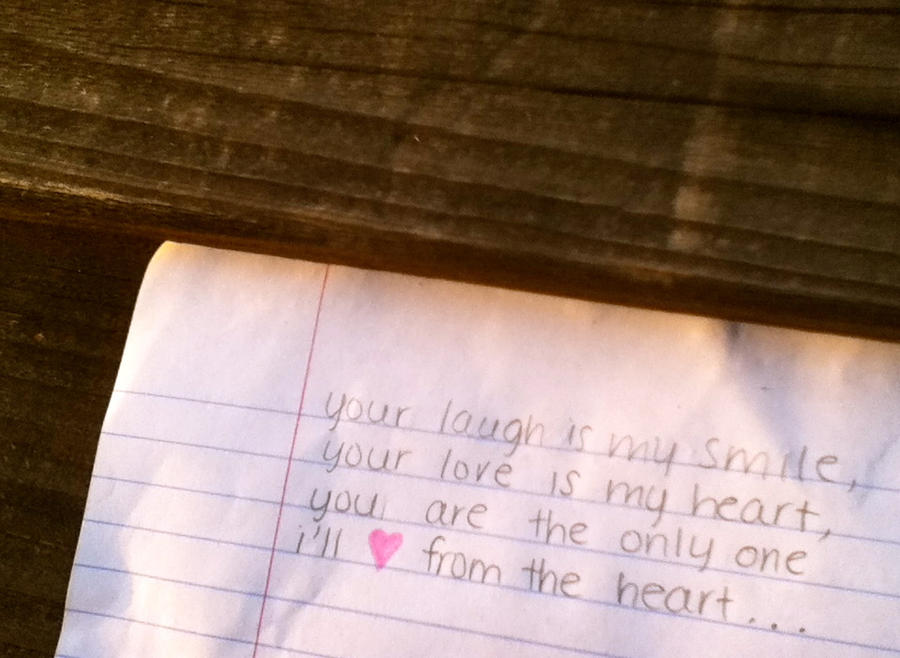 your laugh is my smile,
your love is my heart,
you are the only one
i'll ♥ from the heart...